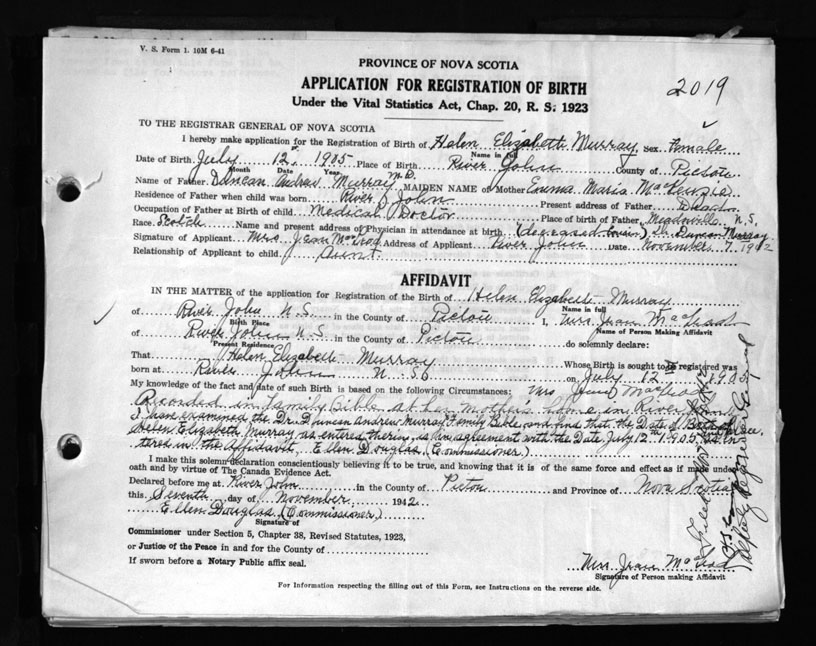 V. S. Form 1. 10M 6-41
PROVINCE OF NOVA SCOTIA
APPLICATION FOR REGISTRATION OF BIRTH
2019
Under the Vital Statistics Act, Chap. 20, R. S. 1923
TO THE REGISTRAR GENERAL OF NOVA SCOTIA
I hereby make application for the Registration of Birth of Helen Elizabeth Murray sex Female
Name in full
Date of Birth July 12th 1905 Place of Birth River John County of Pictou
Month Date Year
Name of Father Duncan Andrew Murray M.D. MAIDEN NAME of Mother Emma Maria McKenzie
Residence of Father when child was born River John Present address of Father Dead
Occupation of Father at Birth of child Medical Doctor Place of birth of Father Meadowville N.S.
Race Scotch Name and present address of Physician in attendance at birth (deceased Cousin) Dr. Duncan Murray
Signature of Applicant Mrs Jean MacLeod Address of Applicant River John Date November 7 1942
Relationship of Applicant to child Aunt
AFFIDAVIT
IN THE MATTER of the application for Registration of the Birth of Helen Elizabeth Murray
Name in full
of River John N.S. in the County of Pictou I, Mrs Jean MacLeod
Birth Place Name of Person Making Affidavit
of River John N S in the County of Pictou do solemnly declare:
Present Residence
That Helen Elizabeth Murray Whose Birth is sought to be registered was
born at River John N. S. on July 12th 1905
My knowledge of the fact and date of such Birth is based on the following Circumstances: Mrs Jean MacLeod
Recorded in family Bible at her mother's home in River John
I have examined the Dr. Duncan Andrew Murray Family Bible, and find that the Date of Birth of
Helen Elizabeth Murray as entered therein, is in agreement with the Date July 12th 1905 as en
tered in the affidavit. Ellen Douglas (Commissioner)
I make this solemn declaration conscientiously believing it to be true, and knowing that it is of the same force and effect as if made under
oath and by virtue of The Canada Evidence Act.
Declared before me at River John in the County of Pictou and Province of Nova Scotia
this Seventh day of November 1942
Ellen Douglas (Commissioner)
Signature of
Commissioner under Section 5, Chapter 38, Revised Statutes, 1923,
or Justice of the Peace in and for the County of
If sworn before a Notary Public affix seal.
Mrs Jean McLeod
Signature of Person making Affidavit
For Information respecting the filling out of this Form, see Instructions on the reverse side.